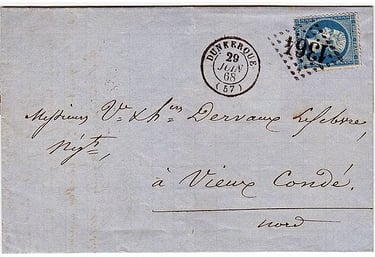 DUNKERQUE
29
JUIN
68
(57)
1364
Messieurs Vve & hers Dervaux Lefebvre,
Négts,
à Vieux Condé.
Nord